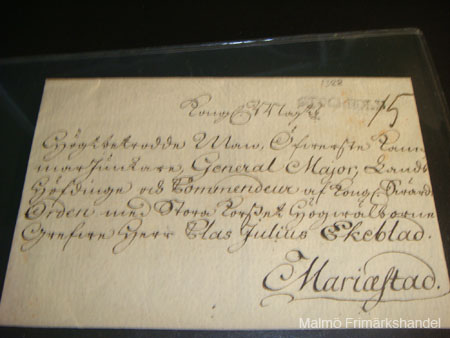 Kongl. Maj:ts
15
Högtbetrodde Man, Öfwerste Kam
marJunkare, General Major, Lands
Höfdinge och Commendeur af Kongl. Swärds
Orden med Stora Korset Högwälborne
Grefwe Herr Clas Julius Ekeblad.
Mariæstad.
Malmö Frimärkshandel